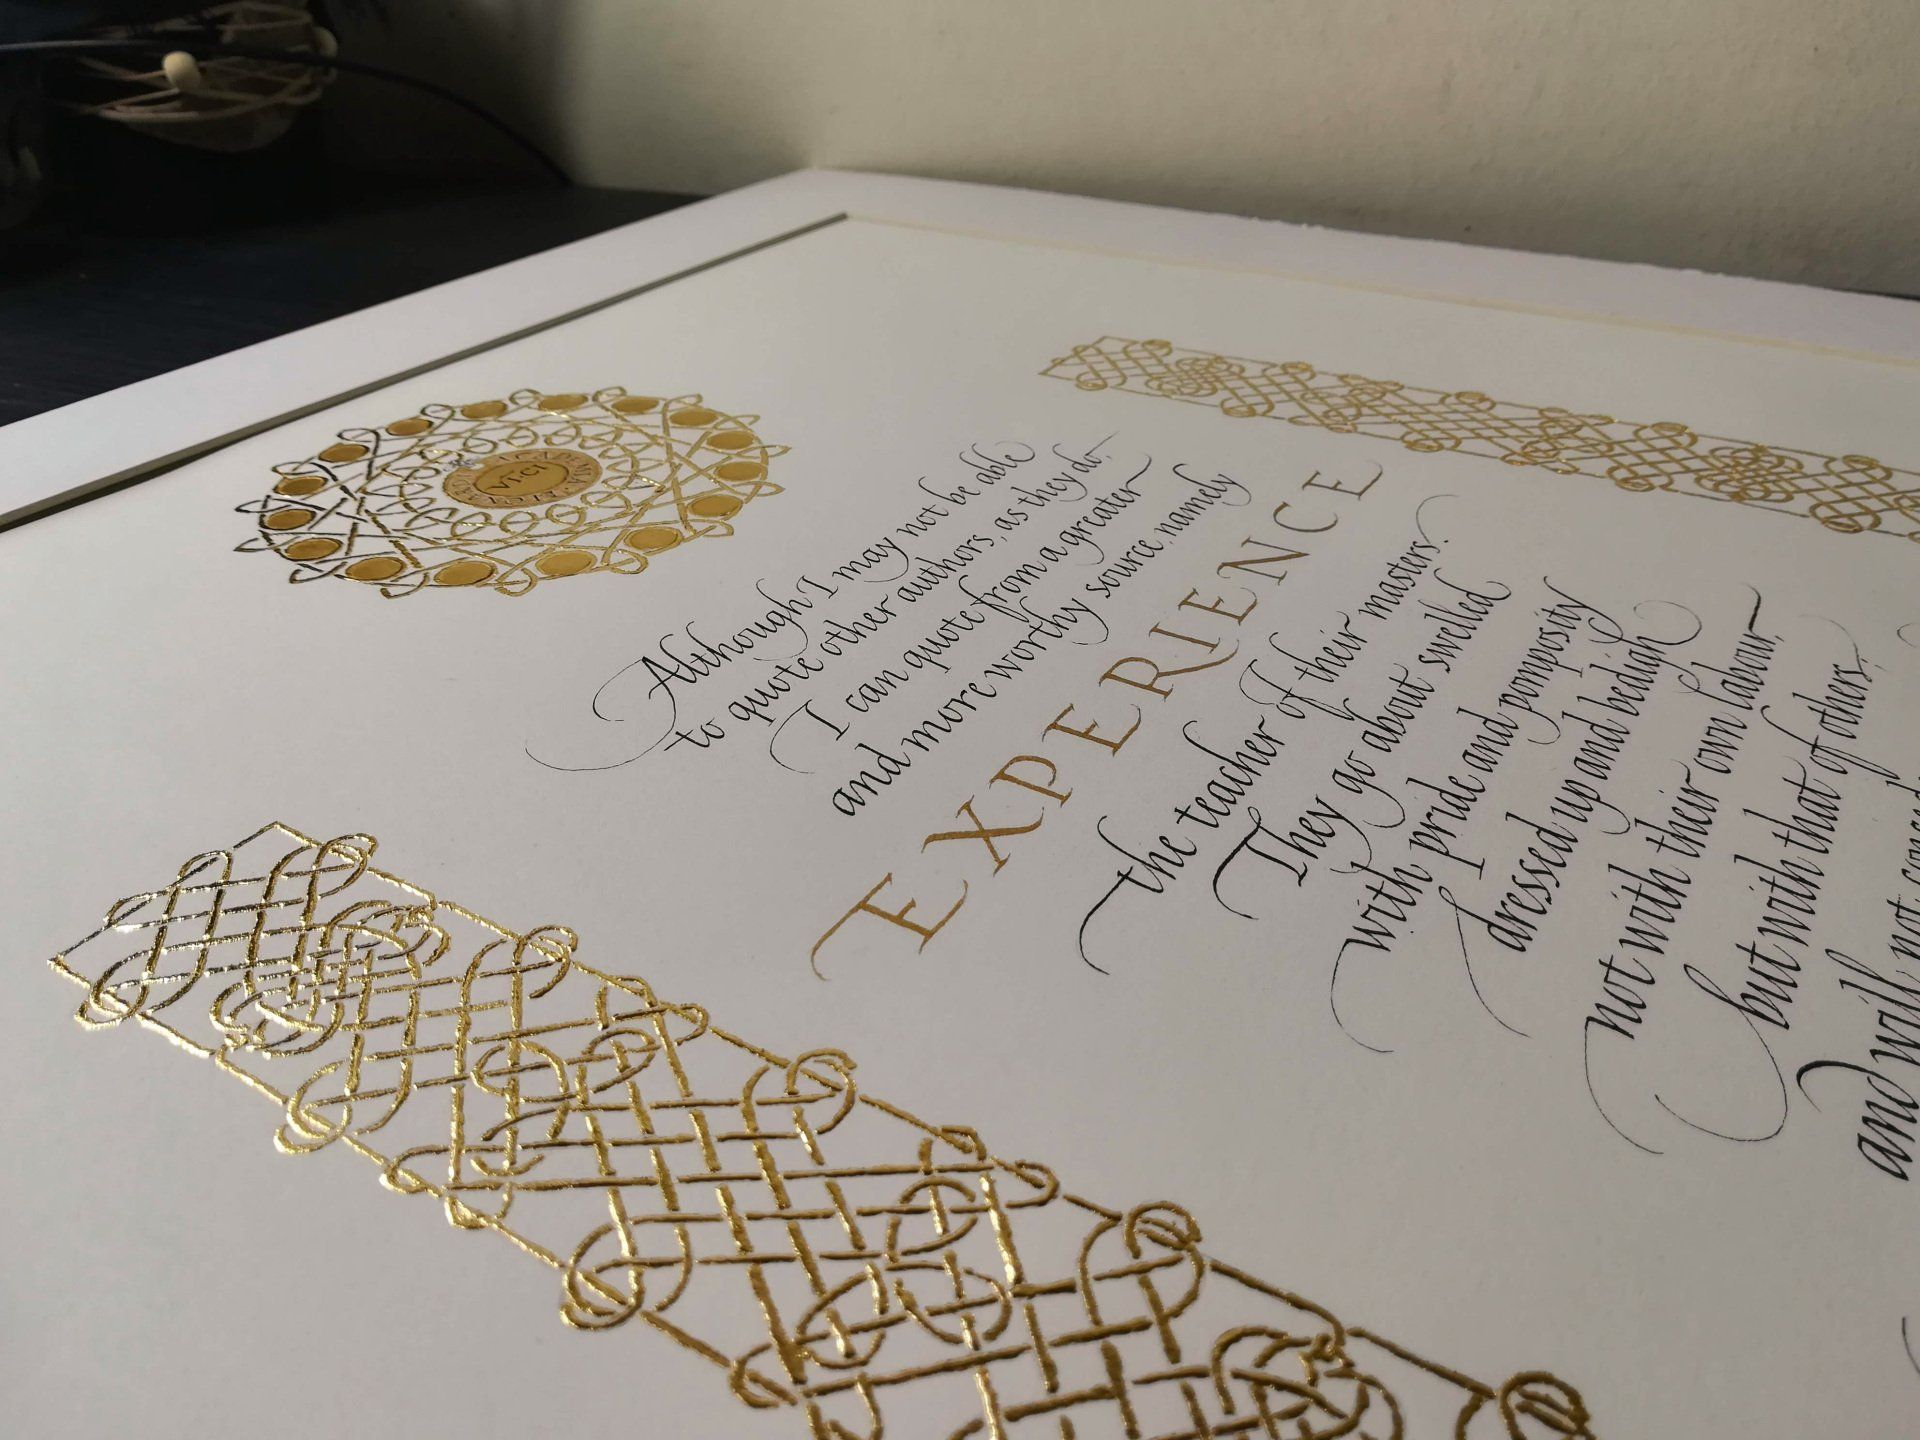 Although I may not be able
to quote other authors, as they do,
I can quote from a greater
and more worthy source, namely
EXPERIENCE
the teacher of their masters.
They go about swelled
with pride and pomposity
dressed up and bedight
not with their own labour,
but with that of others,
and will not